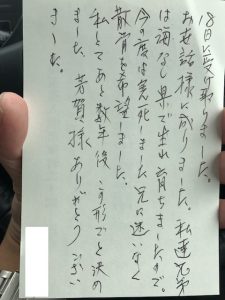 18日に受け取りました。
お世話様に成りました。私達兄弟
は海なし県で生れ育ちましたので。
今の度は実死しました兄は迷いなく
散骨を希望しました。
私としてあと数年後、この形でと決め
ました。芳賀様ありがとうござい
ました。